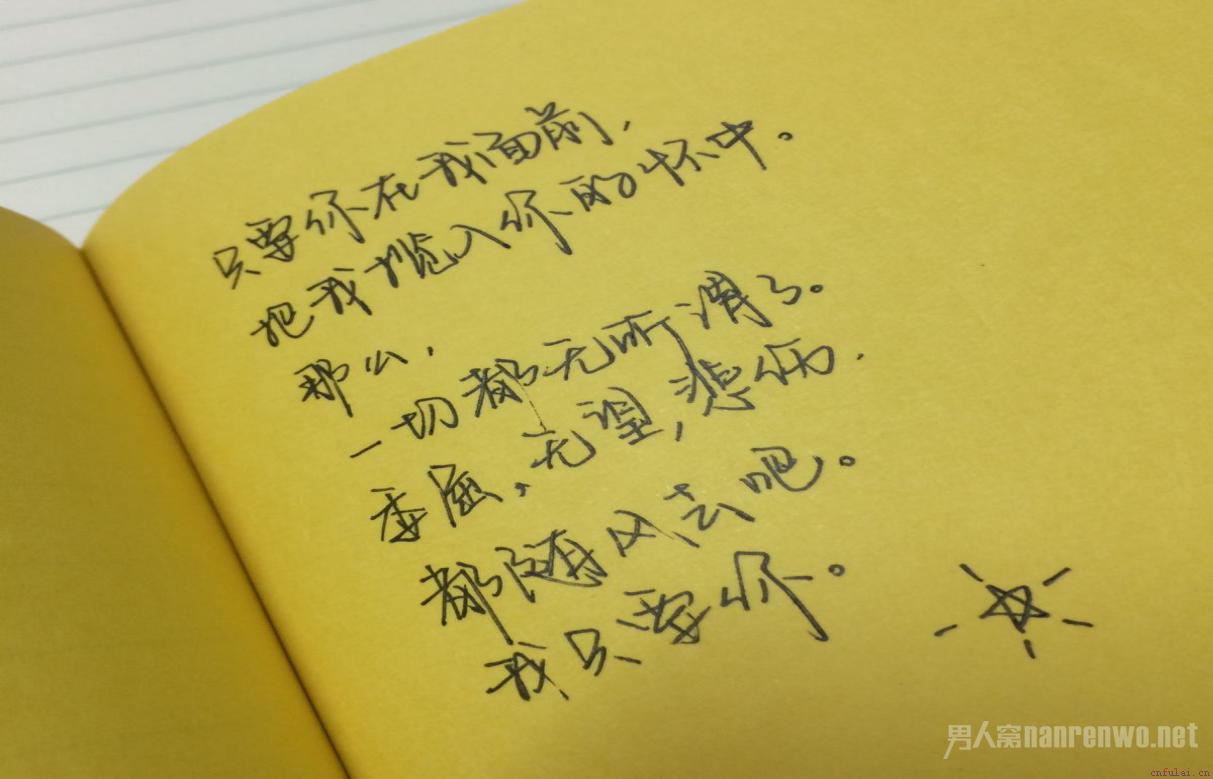 只要你在我面前，
把我揽入你的怀中。
那么，
一切都无所谓了。
委屈，无望，悲伤．
都随风去吧。
我只要你。
男人窝nanrenwo.net
cnfulai.cn